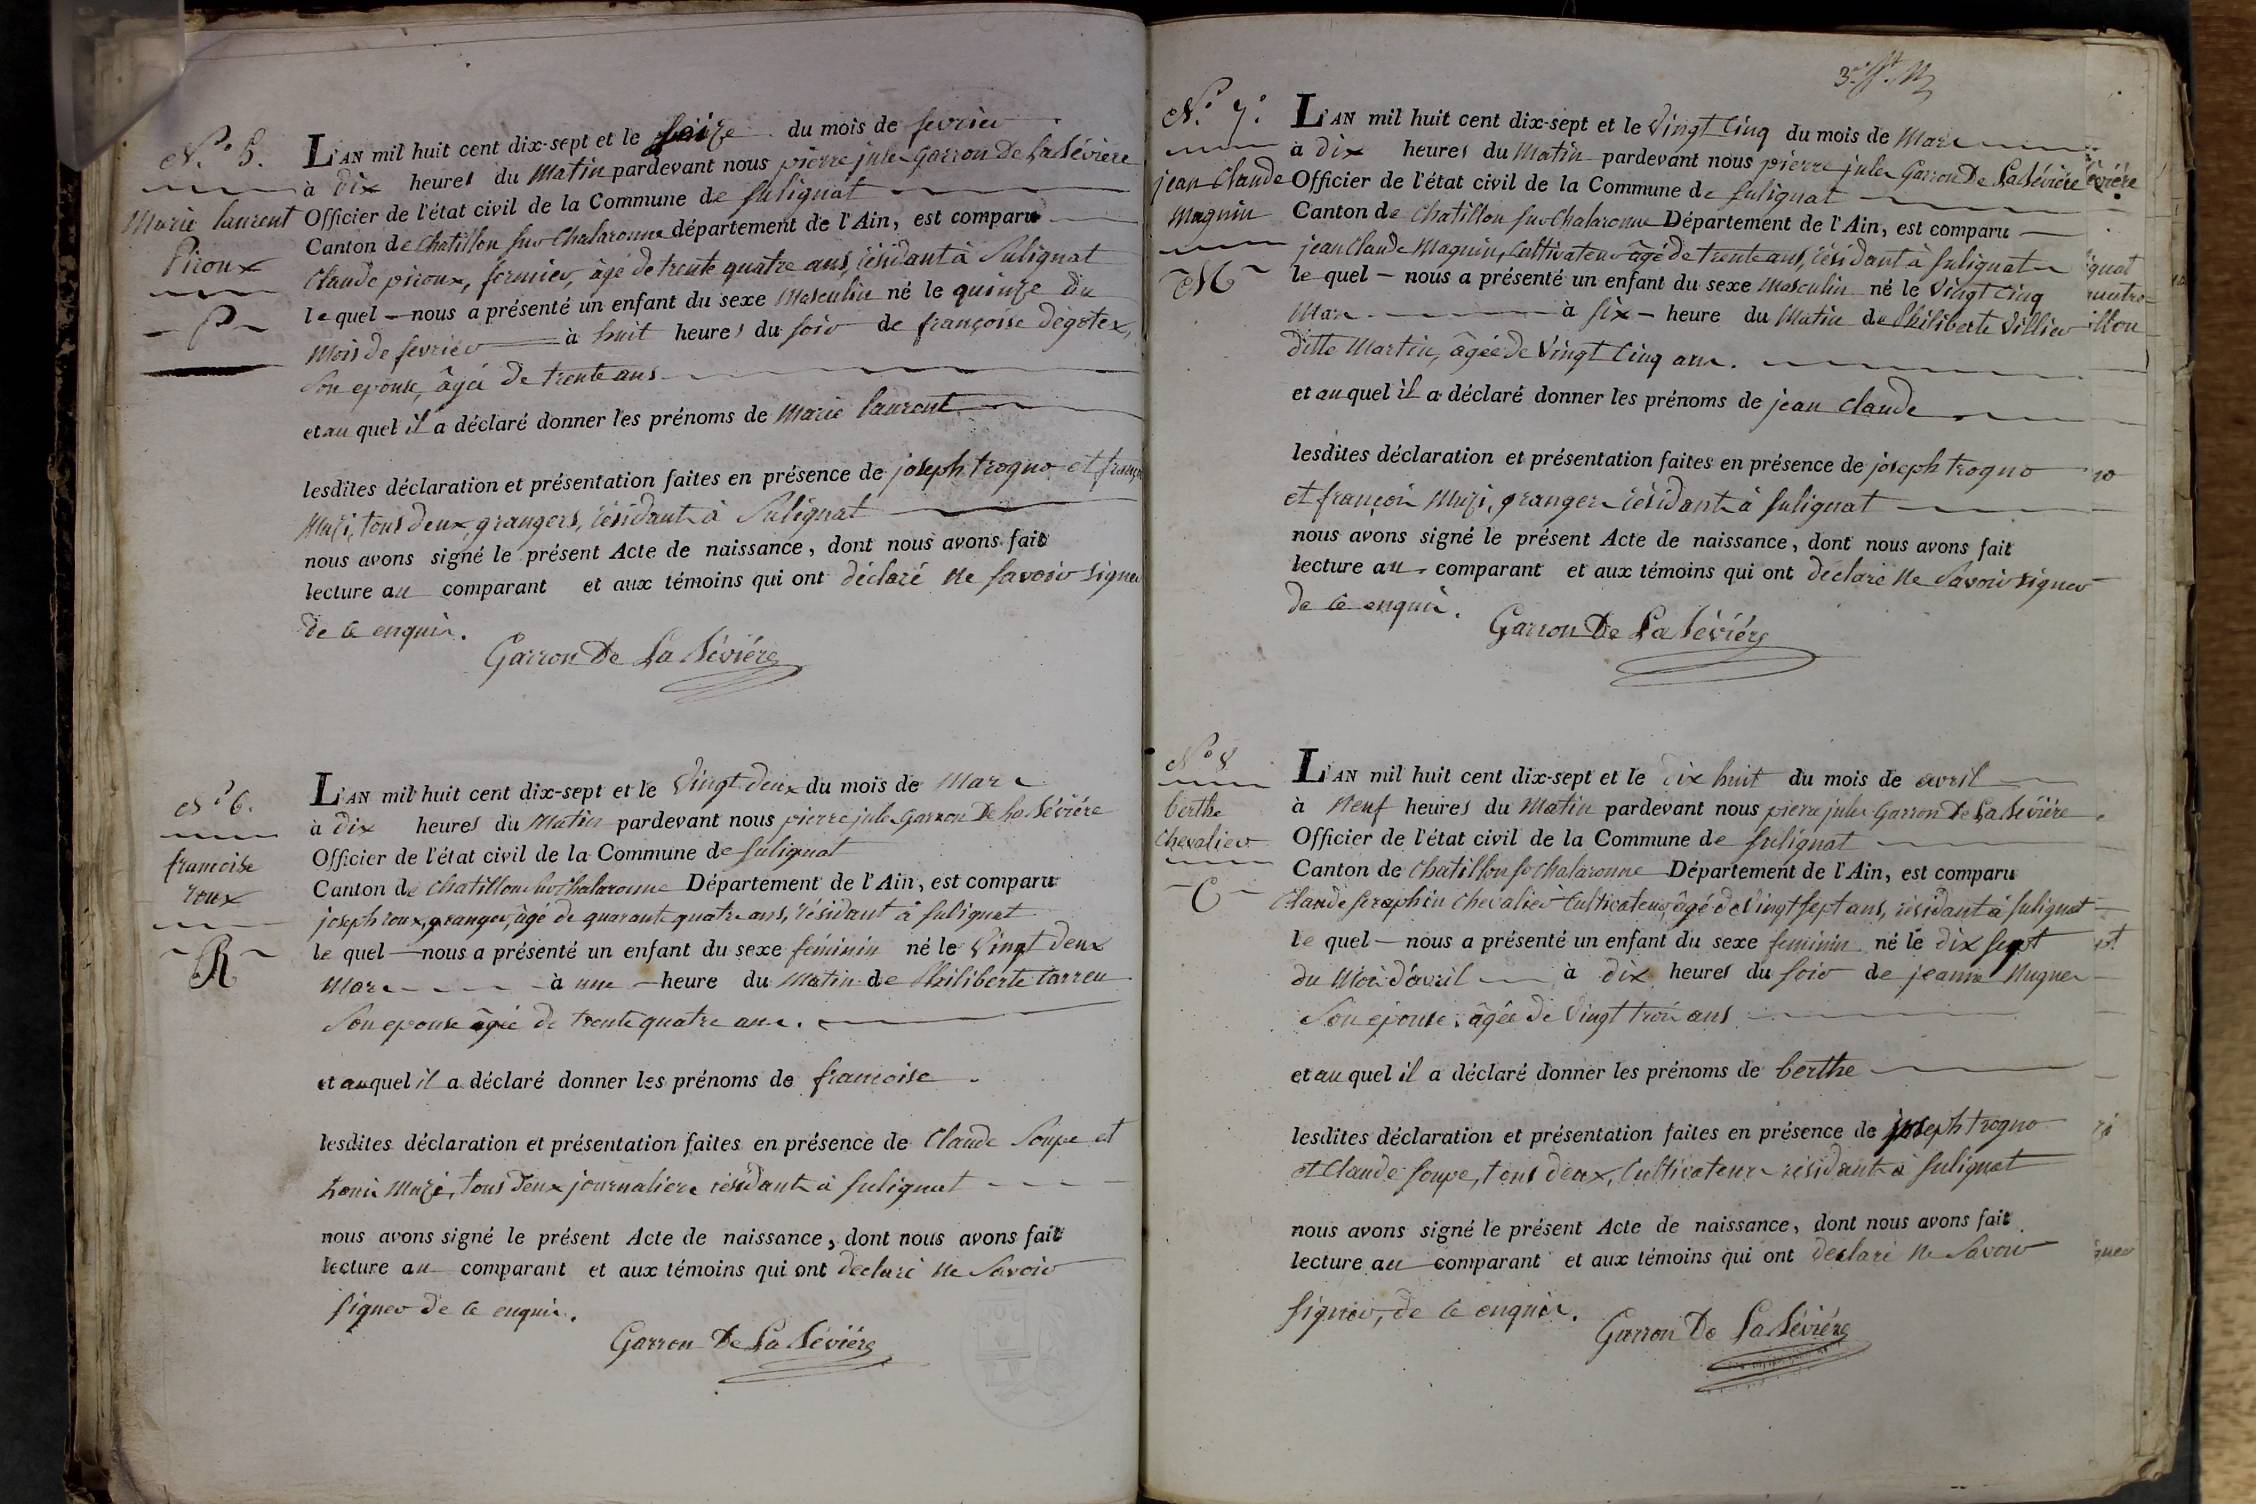 N.o 5.
Marie laurent
Piroux
P
L'AN mil huit cent dix-sept et le seize du mois de fevrier
à dix heures du Matin pardevant nous pierre jules Garron De La Séviére
Officier de l'état civil de la Commune de Sulignat
Canton de Chatillon sur Chalaronne département de l'Ain, est comparu
Claude piroux, fermier, âgé de trente quatre ans, résidant à Sulignat
le quel nous a présenté un enfant du sexe Masculin né le quinze du
Mois de fevrier à huit heures du soir de françoise degotex,
Son epouse, âgée de trente ans
et au quel il a déclaré donner les prénoms de Marie laurent
lesdites déclaration et présentation faites en présence de joseph trogno et
Muzi, tous deux grangers, résidants à Sulignat
nous avons signé le présent Acte de naissance, dont nous avons fait
lecture au comparant et aux témoins qui ont déclaré ne savoir signer
de ce enquis.
Garron De La Séviére
N.o 6.
francoise
roux
R
L'AN mil huit cent dix-sept et le Vingt deux du mois de Mars
à dix heures du Matin pardevant nous pierre jules Garron De La Séviére
Officier de l'état civil de la Commune de Sulignat
Canton de Chatillon sur Chalaronne Département de l'Ain, est comparu
joseph roux, granger, âgé de quarante quatre ans, résidant à Sulignat
le quel nous a présenté un enfant du sexe feminin né le Vingt deux
Mars à une heure du Matin de Philiberte carreu
Son epouse âgée de trente quatre ans.
et auquel il a déclaré donner les prénoms de francoise
lesdites déclaration et présentation faites en présence de Claude Soupe et
Louis Muzi, tous deux journaliers résidants à Sulignat
nous avons signé le présent Acte de naissance, dont nous avons fait
lecture au comparant et aux témoins qui ont declaré ne Savoir
signer de ce enquis.
Garron De La Séviére
N.o 7.
jean Claude
Maguin
M
L'AN mil huit cent dix-sept et le Vingt Cinq du mois de Mars
à dix heures du Matin pardevant nous pierre jules Garron De La Séviére
Officier de l'état civil de la Commune de Sulignat
Canton de Chatillon sur Chalaronne Département de l'Ain, est comparu
jean Claude Maguin, Cultivateur âgé de trente ans, résidant à Sulignat
le quel nous a présenté un enfant du sexe Masculin né le Vingt Cinq
Mars à six heure du Matin de Philiberte Villier
ditte Martin, âgée de Vingt Cinq ans.
et au quel il a déclaré donner les prénoms de jean Claude
lesdites déclaration et présentation faites en présence de joseph trogno
et françois Muzi, grangers résidants à Sulignat
nous avons signé le présent Acte de naissance, dont nous avons fait
lecture au comparant et aux témoins qui ont déclaré ne Savoir signer
de ce enquis.
Garron De La Séviére
N.o 8
berthe
Chevalier
C
L'AN mil huit cent dix-sept et le dix huit du mois de avril
à Neuf heures du Matin pardevant nous pierre jules Garron De La Séviére
Officier de l'état civil de la Commune de Sulignat
Canton de Chatillon sr Chalaronne Département de l'Ain, est comparu
Claude Seraphin Chevalier Cultivateur, âgé de Vingt sept ans, résidant à Sulignat
le quel nous a présenté un enfant du sexe feminin né le dix sept
du Mois d'avril à dix heures du soir de jeanne Nugues
Son epouse, âgée de Vingt trois ans
et au quel il a déclaré donner les prénoms de berthe
lesdites déclaration et présentation faites en présence de joseph trogno
et Claude Soupe, tous deux, Cultivateurs résidants à Sulignat
nous avons signé le présent Acte de naissance, dont nous avons fait
lecture au comparant et aux témoins qui ont declaré ne Savoir
signer, de ce enquis.
Garron De La Séviére